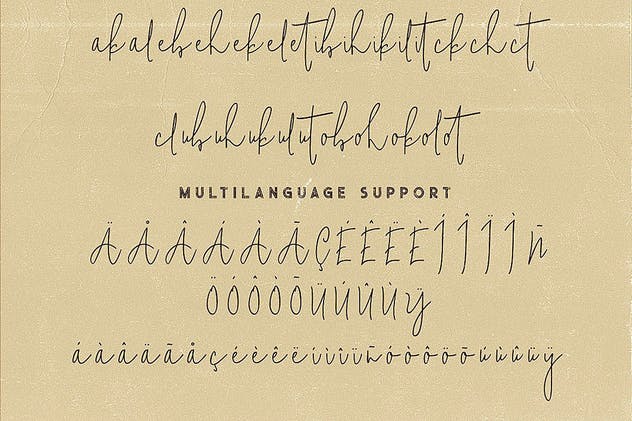 akalebehekeletibihikilitckchct
clubuhukulutobohokolot
MULTILANGUAGE SUPPORT
ÄÅÂÁÀÃÇÉÊËÈÍÎÏÌñ
ÖÓÔÒÕÜÚÛÙÿ
áàâäãåçéèêëíìîïñóòôöõúùûüÿ